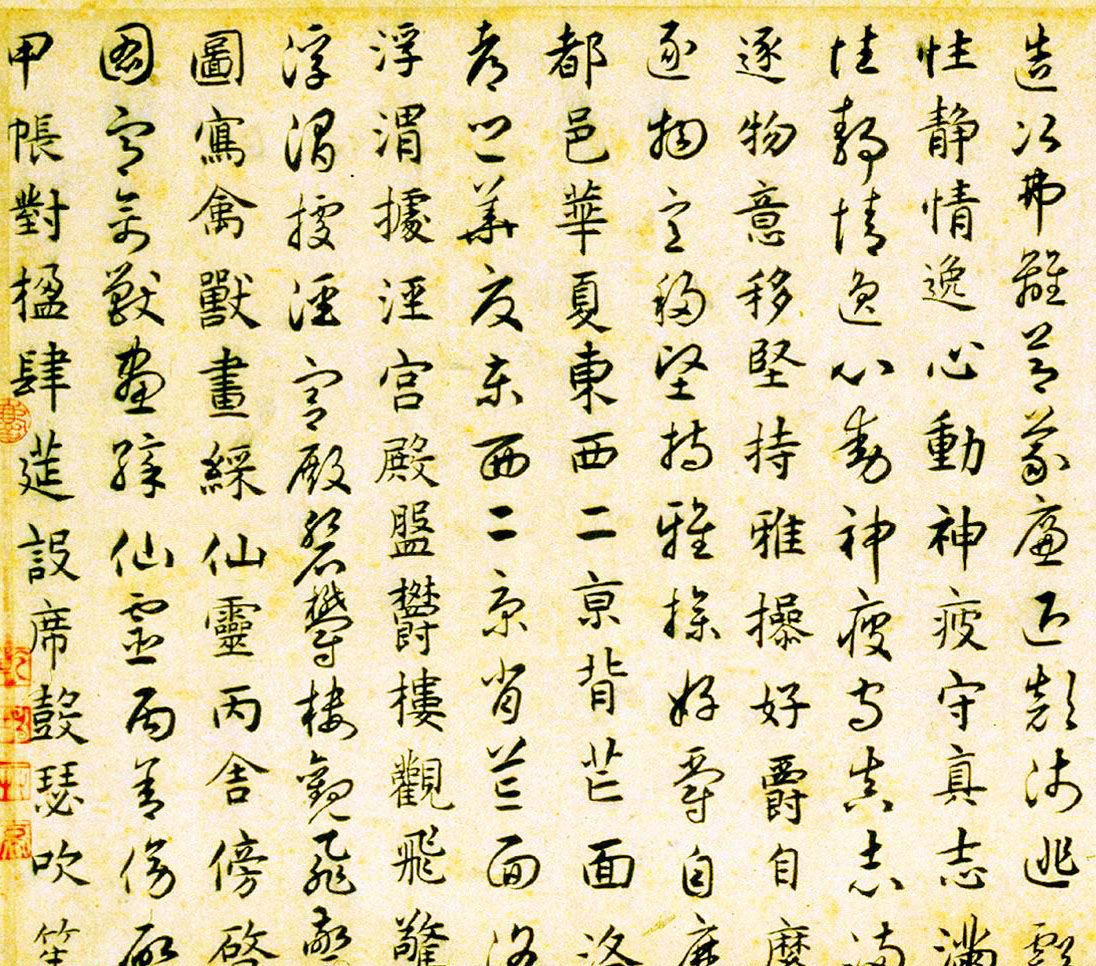 造次弗離節義廉退顛沛匪虧
性静情逸心動神疲守真志滿
性静情逸心動神疲守真志滿
逐物意移堅持雅操好爵自縻
逐物意移堅持雅操好爵自縻
都邑華夏東西二京背芒面洛
都邑華夏東西二京背芒面洛
浮渭據涇宮殿盤鬱樓觀飛驚
浮渭據涇宮殿盤鬱樓觀飛驚
圖寫禽獸畫綵仙靈丙舍傍啓
圖寫禽獸畫綵仙靈丙舍傍啓
甲帳對楹肆筵設席鼓瑟吹笙